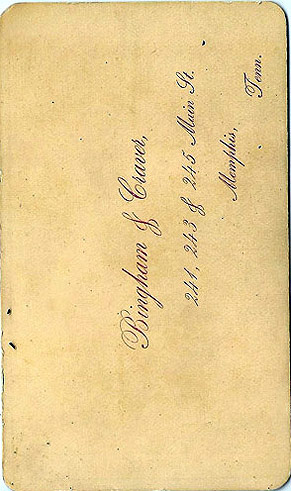 Bingham & Craver,
241, 243 & 245 Main St.
Memphis, Tenn.